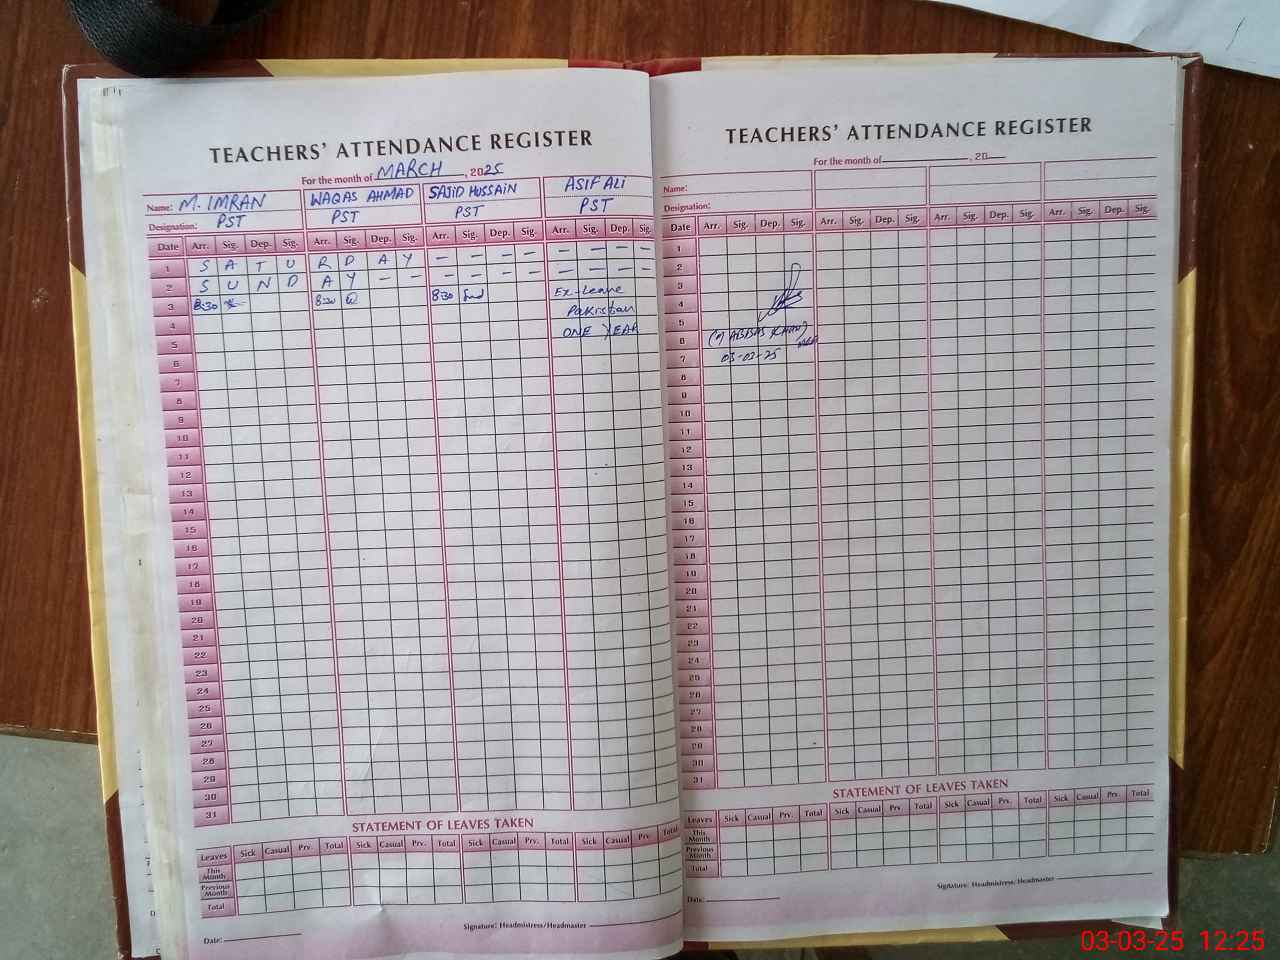 TEACHERS' ATTENDANCE REGISTER
For the month of MARCH, 2025
Name: M. IMRAN WAQAS AHMAD SAJID HUSSAIN ASIF ALI
Designation: PST PST PST PST
Date Arr. Sig. Dep. Sig. Arr. Sig. Dep. Sig. Arr. Sig. Dep. Sig. Arr. Sig. Dep. Sig.
1 S A T U R D A Y - - - - - - - -
2 S U N D A Y - - - - - - - - - -
3 8:30 8:20 8:30 Ex-Leave
4 Pakistan
5 ONE YEAR
6
7
8
9
10
11
12
13
14
15
16
17
18
19
20
21
22
23
24
25
26
27
28
29
30
31
STATEMENT OF LEAVES TAKEN
Leaves Sick Casual Prv. Total Sick Casual Prv. Total Sick Casual Prv. Total Sick Casual Prv. Total
This Month
Previous Month
Total
Signature: Headmistress/Headmaster
Date:
TEACHERS' ATTENDANCE REGISTER
For the month of , 20
Name:
Designation:
Date Arr. Sig. Dep. Sig. Arr. Sig. Dep. Sig. Arr. Sig. Dep. Sig. Arr. Sig. Dep. Sig.
1
2
3
4
5
6 (M ABBAS KHAN)
7 03-03-25
8
9
10
11
12
13
14
15
16
17
18
19
20
21
22
23
24
25
26
27
28
29
30
31
STATEMENT OF LEAVES TAKEN
Leaves Sick Casual Prv. Total Sick Casual Prv. Total Sick Casual Prv. Total Sick Casual Prv. Total
This Month
Previous Month
Total
Signature: Headmistress/Headmaster
Date:
03-03-25 12:25